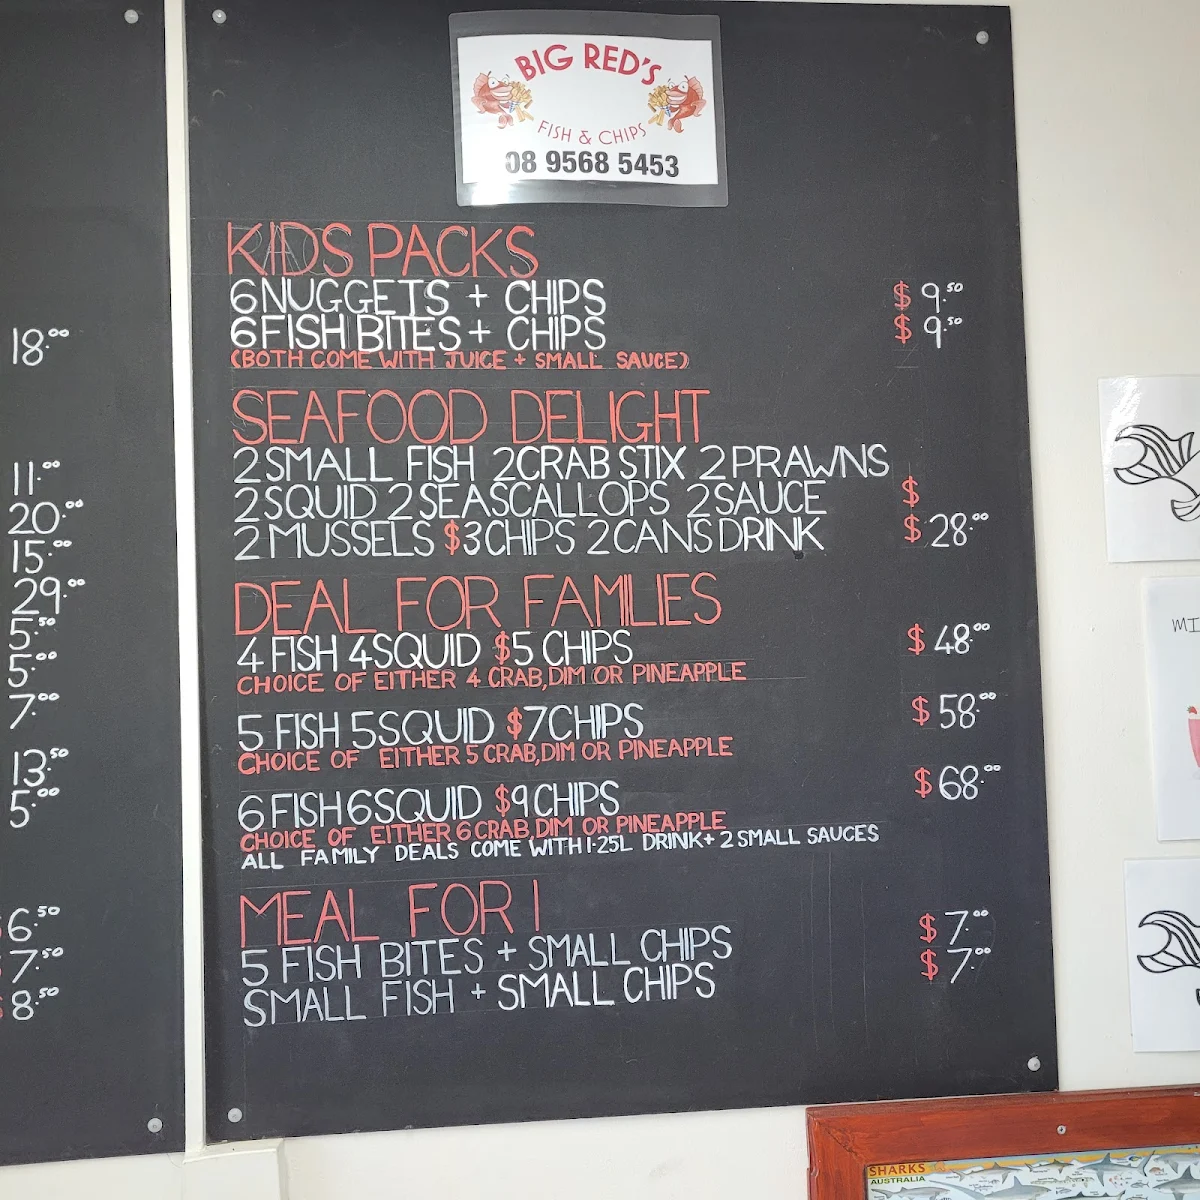 BIG RED'S
FISH & CHIPS
08 9568 5453
KIDS PACKS
6 NUGGETS + CHIPS $9.50
6 FISH BITES + CHIPS $9.50
(BOTH COME WITH JUICE + SMALL SAUCE)
SEAFOOD DELIGHT
2 SMALL FISH 2 CRAB STIX 2 PRAWNS
2 SQUID 2 SEASCALLOPS 2 SAUCE $
2 MUSSELS $3 CHIPS 2 CANS DRINK $28.00
DEAL FOR FAMILIES
4 FISH 4 SQUID $5 CHIPS $48.00
CHOICE OF EITHER 4 CRAB, DIM OR PINEAPPLE
5 FISH 5 SQUID $7 CHIPS $58.00
CHOICE OF EITHER 5 CRAB, DIM OR PINEAPPLE
6 FISH 6 SQUID $9 CHIPS $68.00
CHOICE OF EITHER 6 CRAB, DIM OR PINEAPPLE
ALL FAMILY DEALS COME WITH 1.25L DRINK + 2 SMALL SAUCES
MEAL FOR 1
5 FISH BITES + SMALL CHIPS $7.00
SMALL FISH + SMALL CHIPS $7.00
18.00
11.00
20.00
15.00
29.00
5.50
5.00
7.00
13.50
5.00
$6.50
$7.50
$8.50
MI
SHARKS
AUSTRALIA